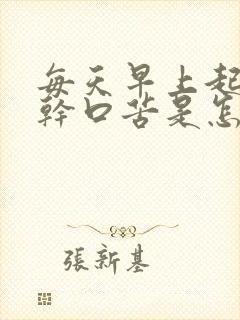 每天早上起
幹口苦是怎
張新基